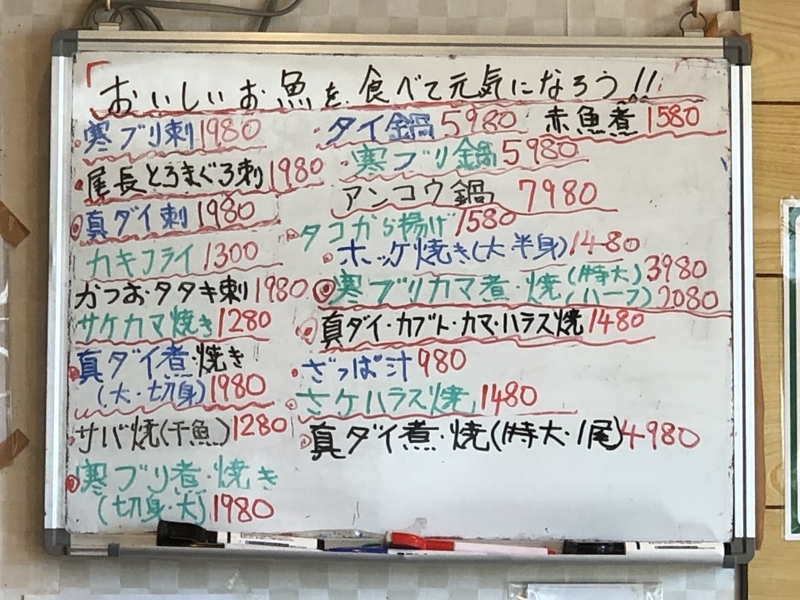 「おいしいお魚を食べて元気になろう!!
寒ブリ刺1980
尾長とろまぐろ刺1980
◎真ダイ刺1980
カキフライ1300
かつお・タタキ刺1980
サケカマ焼き1280
真ダイ煮・焼き
(大・切身)1980
サバ焼(干魚)1280
◎寒ブリ煮・焼き
(切身・大)1980
タイ鍋5980
赤魚煮1580
寒ブリ鍋5980
アンコウ鍋 7980
タコから揚げ1580
ホッケ焼き(大半身)1480
◎寒ブリカマ煮・焼(特大)3980
(ハーフ)2080
◎真ダイ・カブト・カマ・ハラス焼1480
ざっぱ汁980
◎さケハラス焼1480
◎真ダイ煮・焼(特大・1尾)4980